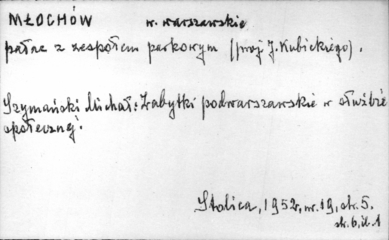 MŁOCHÓW w. warszawskie
pałac z zespołem parkowym (proj J. Kubickiego).
Szymański Michał: Zabytki podwarszawskie w służbie
społecznej.
Stolica, 1952, nr. 19, str. 5.
str. 6, il. 1